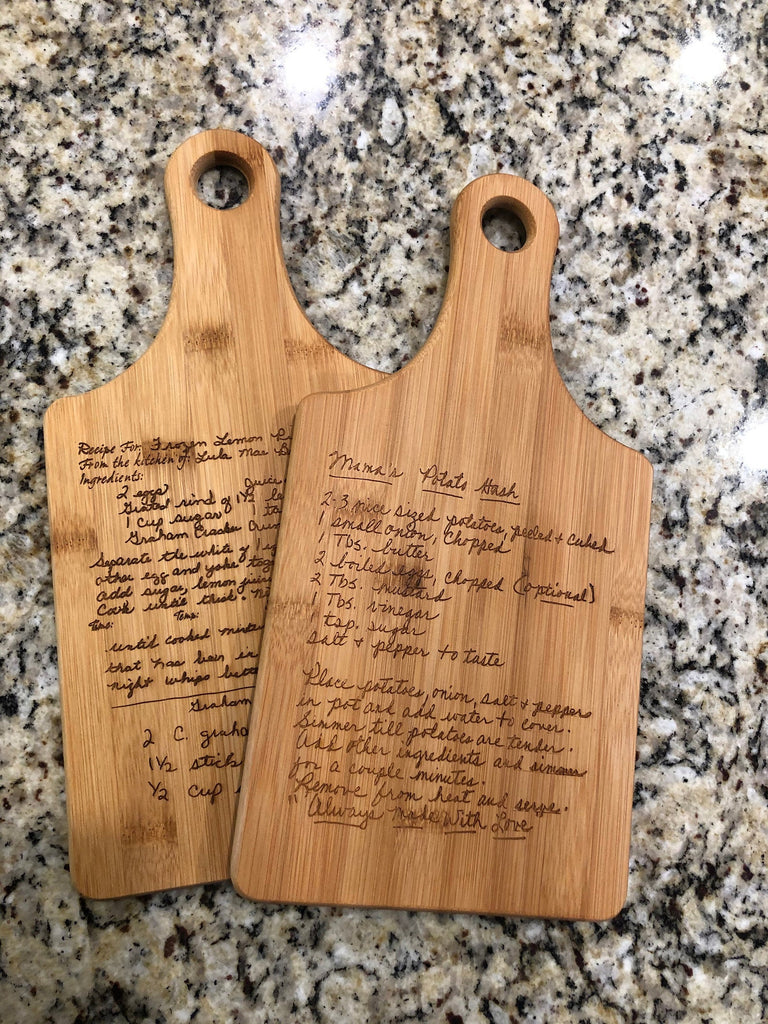 Recipe For: Frozen Lemon
From the kitchen of: Lula Mae
Ingredients:
2 eggs Juice
Grated rind of 1½
1 cup sugar 1
Graham Cracker
Separate the white of 1
other egg and yoke
add sugar, lemon
Cook until thick.
Time: Temp:
until cooked
that has been in
night whips
Graham
2 C.
1½ stick
½ cup
Mama's Potato Hash
2-3 nice sized potatoes, peeled & cubed
1 small onion, chopped
1 Tbs. butter
2 boiled eggs, chopped (optional)
2 Tbs. mustard
1 Tbs. vinegar
tsp. sugar
salt & pepper to taste
Place potatoes, onion, salt & pepper
in pot and add water to cover.
Simmer till potatoes are tender.
Add other ingredients and simmer
for a couple minutes.
Remove from heat and serve.
"Always made with Love